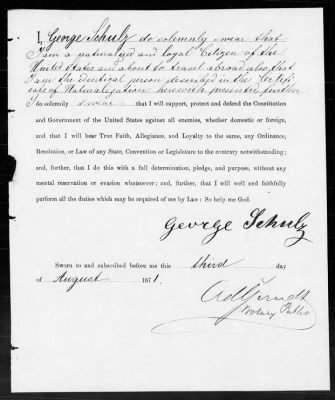 I, George Schulz do solemnly swear that
I am a naturalized and loyal Citizen of the
United States and am about to travel abroad also that
I am the identical person described in the Certifi
cate of Naturalization herewith presented, further
I do solemnly swear that I will support, protect and defend the Constitution
and Government of the United States against all enemies, whether domestic or foreign,
and that I will bear True Faith, Allegiance, and Loyalty to the same, any Ordinance,
Resolution, or Law of any State, Convention or Legislature to the contrary notwithstanding;
and, further, that I do this with a full determination, pledge, and purpose, without any
mental reservation or evasion whatsoever; and, further, that I will well and faithfully
perform all the duties which may be required of me by Law: So help me God.
George Schulz
Sworn to and subscribed before me this third day
of August 1871.
Notary Public